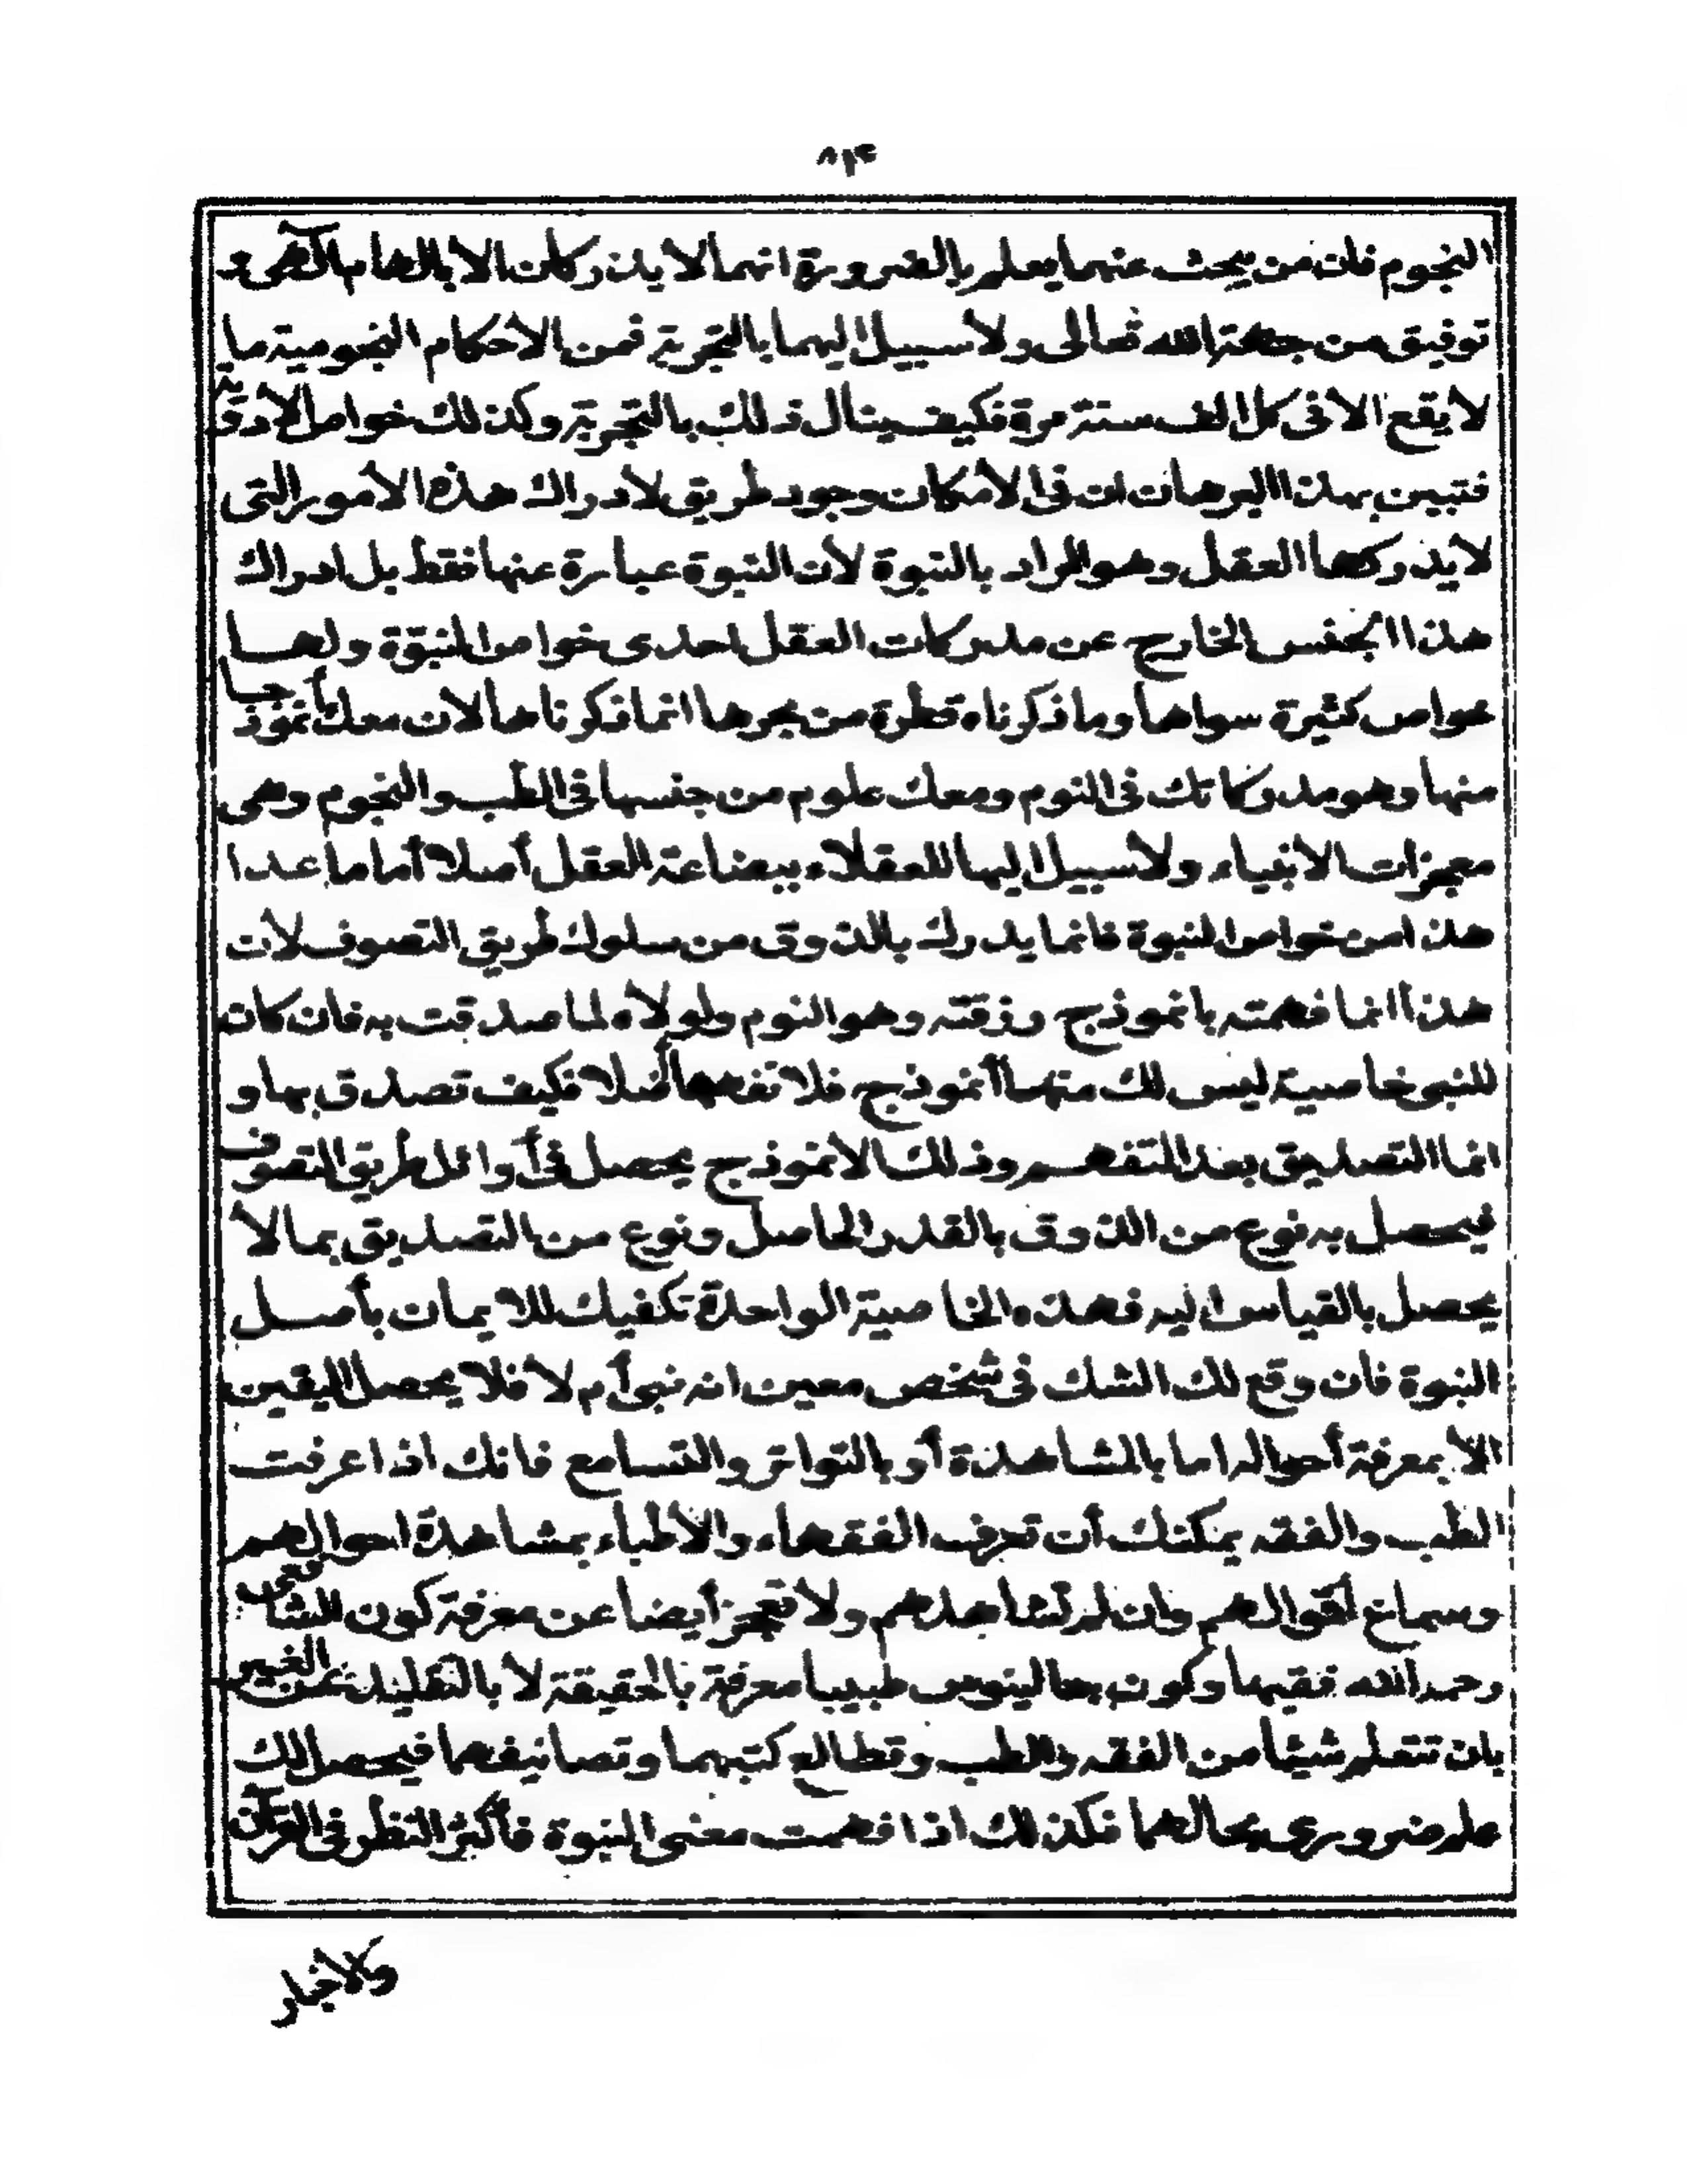 ٨١٤
النجوم فان من يبحث عنهما يعلم بالضرورة انهما لا يدركان الا بالهام الٓهى و
توفيق من جهة الله تعالى ولا سبيل اليهما بالتجربة فمن الأحكام النجومية ما
لا يقع الا فى كل الف سنة مرة فكيف ينال ذلك بالتجربة وكذلك خواص الأدوية
فتبين بهذا البرهان ان فى الامكان وجود طريق لادراك هذه الأمور التى
لا يدركها العقل وهو المراد بالنبوة لأن النبوة عبارة عنها فقط بل ادراك
هذا الجنس الخارج عن مدركات العقل احدى خواص النبوة ولها
خواص كثيرة سواها وما ذكرناه قطرة من بحرها انما ذكرناها لان معك أنموذجا
منها وهو مدركاتك فى النوم ومعك علوم من جنسها فى الطب والنجوم وهى
معجزات الانبياء ولا سبيل اليها للعقلاء ببضاعة العقل أصلا أما ما عدا
هذا من خواص النبوة فانما يدرك بالذوق من سلوك طريق التصوف لان
هذا انما فهمته بانموذج رزقته وهو النوم ولولاه لما صدقت به فان كان
للنبى خاصية ليس لك منها أنموذج فلا تفهمها أصلا فكيف تصدق بها و
انما التصديق بعد التفهم وذلك الانموذج يحصل فى أوائل طريق التصوف
فيحصل به نوع من الذوق بالقدر الحاصل ونوع من التصديق بما لا
يحصل بالقياس اليه فهذه الخاصية الواحدة تكفيك للايمان بأصل
النبوة فان وقع لك الشك فى شخص معين انه نبى أم لا فلا يحصل اليقين
الا بمعرفة أحواله اما بالمشاهدة أو بالتواتر والتسامع فانك اذا عرفت
الطب والفقه يمكنك أن تعرف الفقهاء والأطباء بمشاهدة احوالهم
وسماع أقوالهم وان لم تشاهدهم ولا تعجز أيضا عن معرفة كون الشافعى
رحمه الله فقيها وكون جالينوس طبيبا معرفة بالحقيقة لا بالتقليد عن الغير
بان تتعلم شيئا من الفقه والطب وتطالع كتبهما وتصانيفهما فيحصل لك
علم ضرورى بحالهما فكذلك اذا فهمت معنى النبوة فأكثر النظر فى القرآن
والاخبار